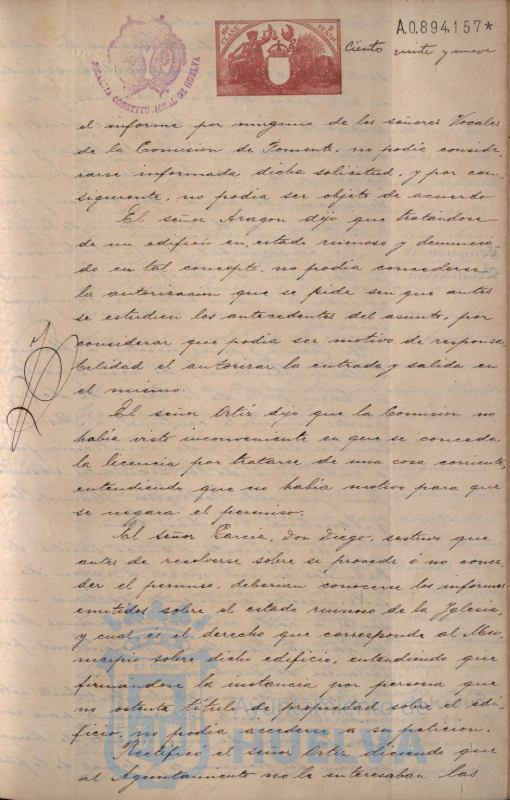 A.0.894.157*
Ciento veinte y nueve
ALCALDIA CONSTITUCIONAL DE HUELVA
el informe por ninguno de los señores Vocales
de la Comision de Fomento, no podia conside-
rarse informada dicha solicitud, y por con-
siguiente, no podia ser objeto de acuerdo
El señor Aragon dijo que tratándose
de un edificio en estado ruinoso y denuncia-
do en tal concepto, no podia concederse
la autorizacion que se pide sin que antes
se estudien los antecedentes del asunto, por
considerar que podia ser motivo de responsa-
bilidad el autorizar la entrada y salida en
el mismo.
El señor Ortiz dijo que la Comision no
habia visto inconveniente en que se conceda
la licencia por tratarse de una cosa corriente,
entendiendo que no habia motivo para que
se negara el permiso.
El señor Garcia, Don Diego, sostuvo que
antes de resolverse sobre si procede ó no conce-
der el permiso, deberian conocerse los informes
emitidos sobre el estado ruinoso de la Yglesia,
y cual es el derecho que corresponde al Mu-
nicipio sobre dicho edificio, entendiendo que
firmandose la instancia por persona que
no ostenta título de propiedad sobre el edi-
ficio, no podia accederse a su peticion.
Rectificó el señor Ortiz diciendo que
al Ayuntamiento no le interesaban las
Ayuntamiento de
HUELVA